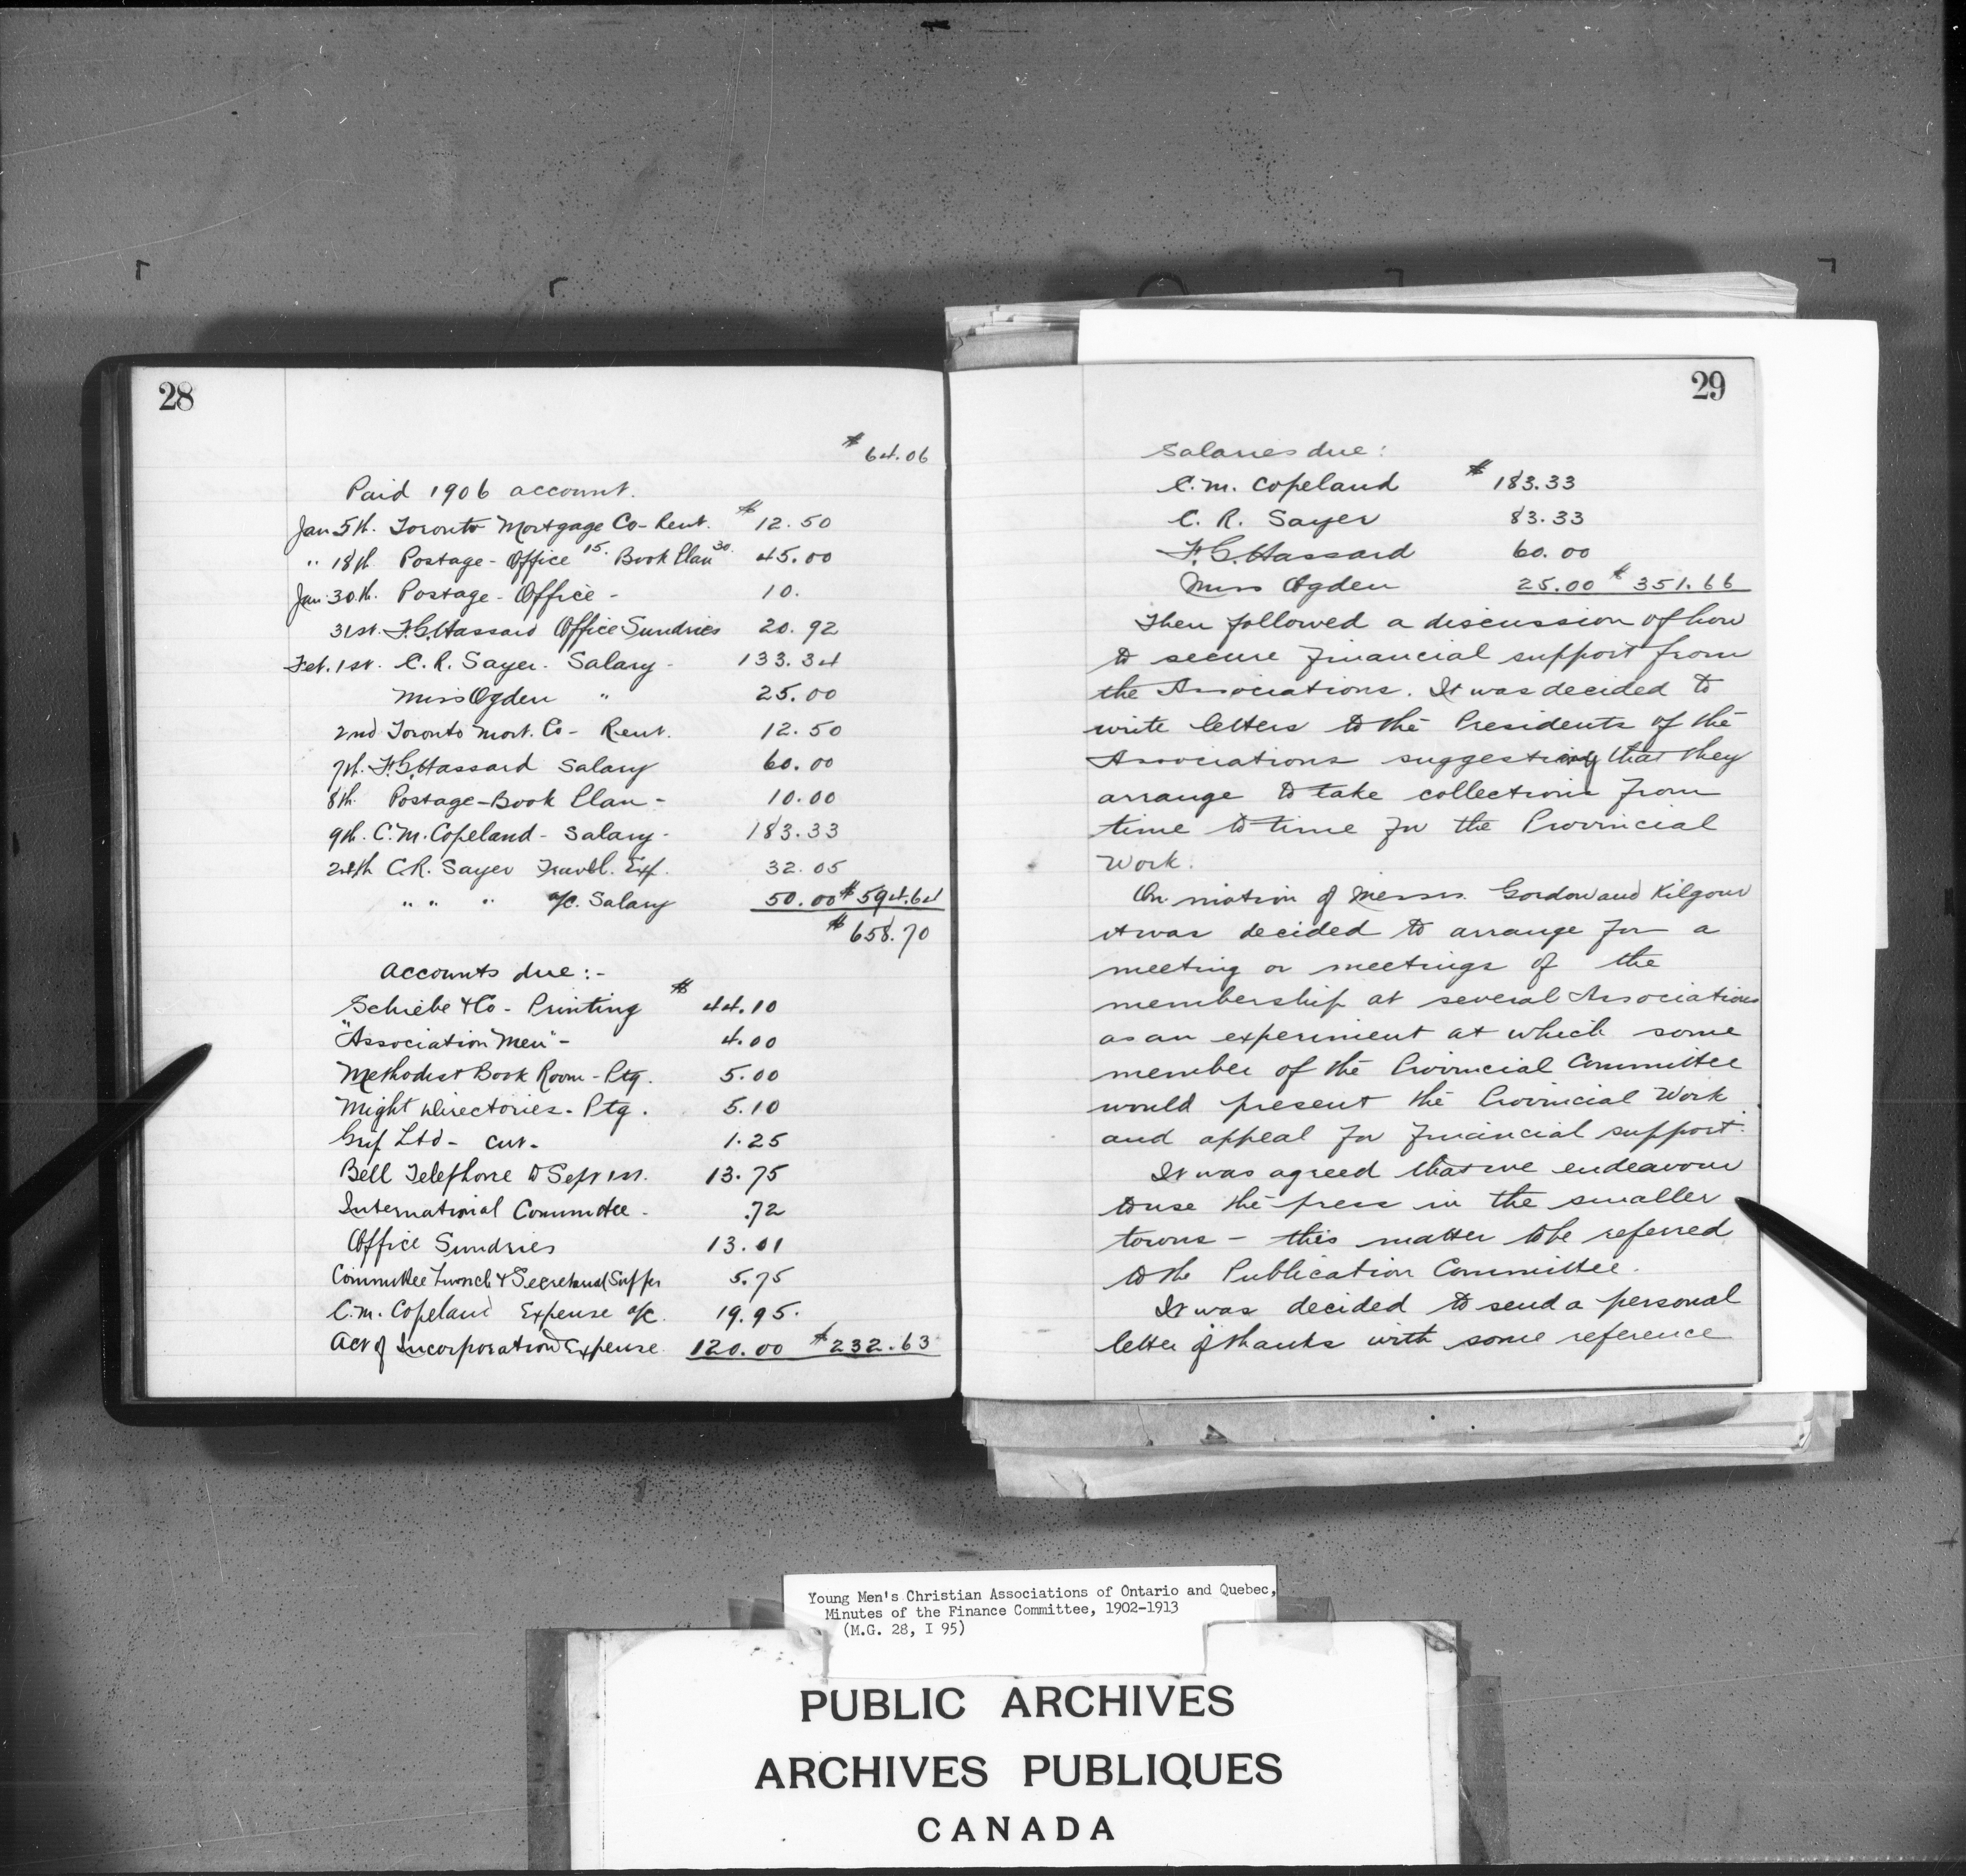 28
$ 64.06
Paid 1906 account.
Jan 5th. Toronto Mortgage Co - Rent. $ 12.50
" 18th Postage - Office 15. Book Plan 30. 45.00
Jan. 30th. Postage - Office - 10.
31st. F.G. Hassard Office Sundries 20.92
Feb. 1st. C.R. Sayer - Salary - 133.34
Miss Ogden " 25.00
2nd Toronto Mort. Co - Rent. 12.50
7th. F.G. Hassard Salary 60.00
8th. Postage - Book Plan - 10.00
9th. C.M. Copeland - Salary - 183.33
24th C.R. Sayer Travel. Exp. 32.05
" " " a/c. Salary 50.00 $ 594.64
$ 658.70
Accounts due :-
Schiebe & Co - Printing $ 44.10
"Association Men" - 4.00
Methodist Book Room - Ptg. 5.00
Might Directories - Ptg. 5.10
Grip Ltd - cut - 1.25
Bell Telephone to Sept 1st. 13.75
International Committee - .72
Office Sundries 13.01
Committee Lunch & Secretarial Supper 5.75
C.M. Copeland Expense a/c. 19.95.
Act of Incorporation Expense 120.00 $ 232.63
29
Salaries due :
C.M. Copeland $ 183.33
C. R. Sayer 83.33
F.G. Hassard 60.00
Miss Ogden 25.00 $ 351.66
Then followed a discussion of how
to secure financial support from
the Associations. It was decided to
write letters to the Presidents of the
Associations suggesting that they
arrange to take collections from
time to time for the Provincial
Work.
On motion of Messrs. Gordon and Kilgour
it was decided to arrange for a
meeting or meetings of the
membership at several Associations
as an experiment at which some
member of the Provincial Committee
would present the Provincial Work
and appeal for financial support.
It was agreed that we endeavour
to use the press in the smaller
towns - this matter to be referred
to the Publication Committee.
It was decided to send a personal
letter of thanks with some reference
Young Men's Christian Associations of Ontario and Quebec,
Minutes of the Finance Committee, 1902-1913
(M.G. 28, I 95)
PUBLIC ARCHIVES
ARCHIVES PUBLIQUES
CANADA